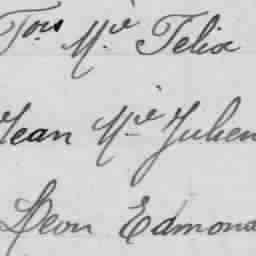 Fois Mie Felix
Jean Mie Julien
Leon Edmond